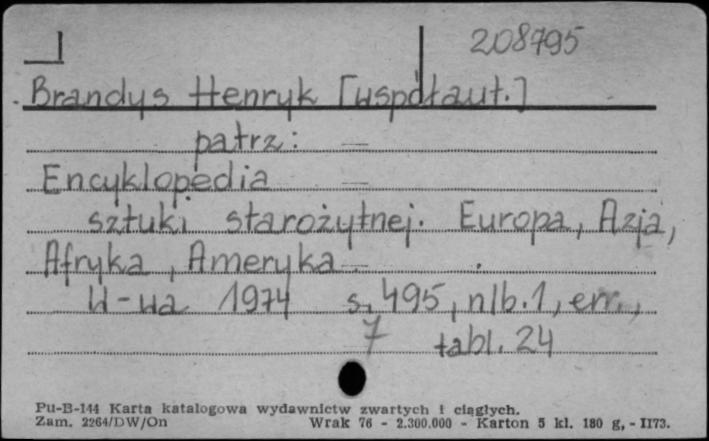 208795
Brandys Henryk [współaut.]
patrz:
Encyklopedia
sztuki starożytnej. Europa, Azja,
Afryka, Ameryka.
W-wa 1974 s. 495, nlb. 1, err.,
7 tabl. 24
Pu-B-144 Karta katalogowa wydawnictw zwartych i ciągłych.
Zam. 2264/DW/On Wrak 76 - 2.300.000 - Karton 5 kl. 180 g, - II73.